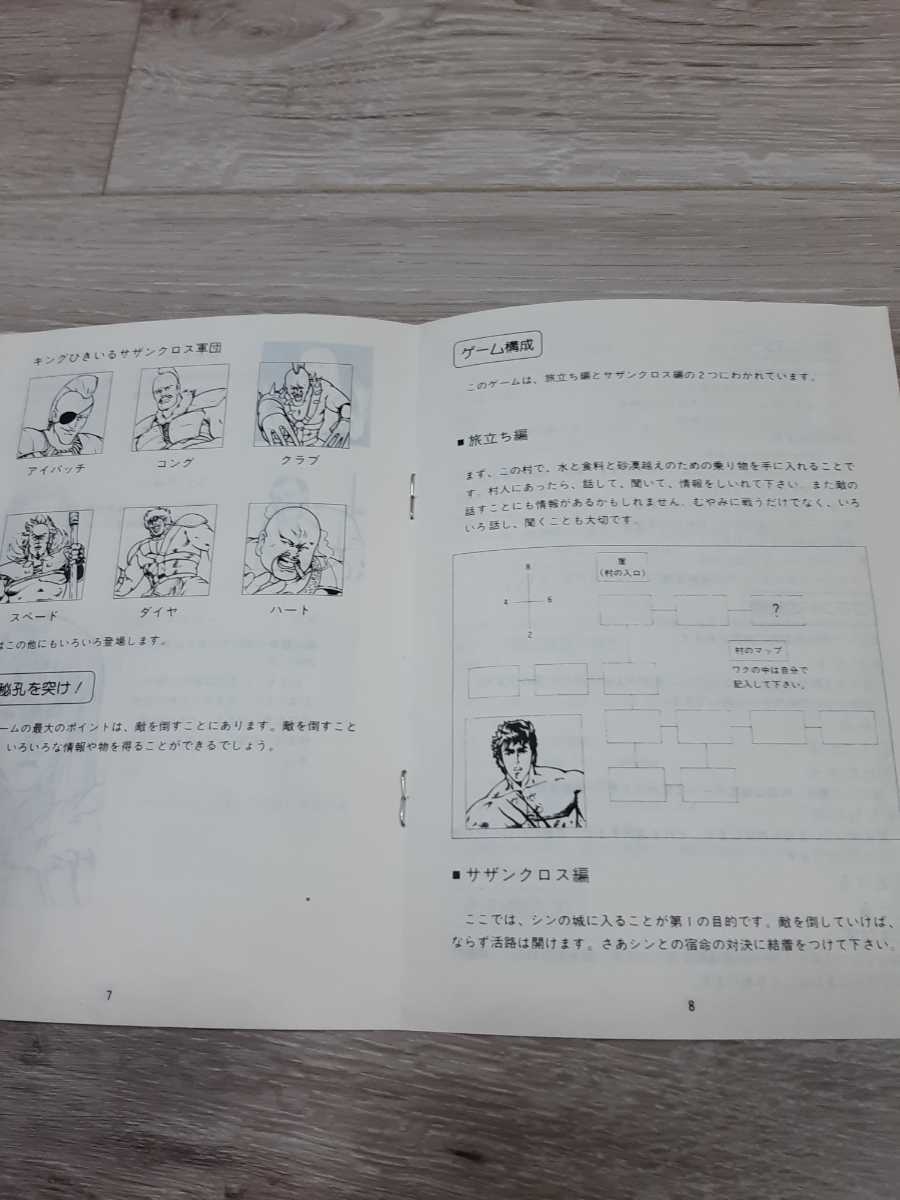 キングひきいるサザンクロス軍団
アイパッチ
コング
クラブ
スペード
ダイヤ
ハート
はこの他にもいろいろ登場します。
秘孔を突け!
ームの最大のポイントは、敵を倒すことにあります。敵を倒すこと
いろいろな情報や物を得ることができるでしょう。
7
ゲーム構成
このゲームは、旅立ち編とサザンクロス編の2つにわかれています。
■旅立ち編
まず、この村で、水と食料と砂漠越えのための乗り物を手に入れることで
す。村人にあったら、話して、聞いて、情報をしいれて下さい。また敵の
話すことにも情報があるかもしれません。むやみに戦うだけでなく、いろ
いろ話し、聞くことも大切です。
8
4 6
2
崖
(村の入口)
?
村のマップ
ワクの中は自分で
記入して下さい。
■サザンクロス編
ここでは、シンの城に入ることが第1の目的です。敵を倒していけば、
ならず活路は開けます。さあシンとの宿命の対決に結着をつけて下さい。
8